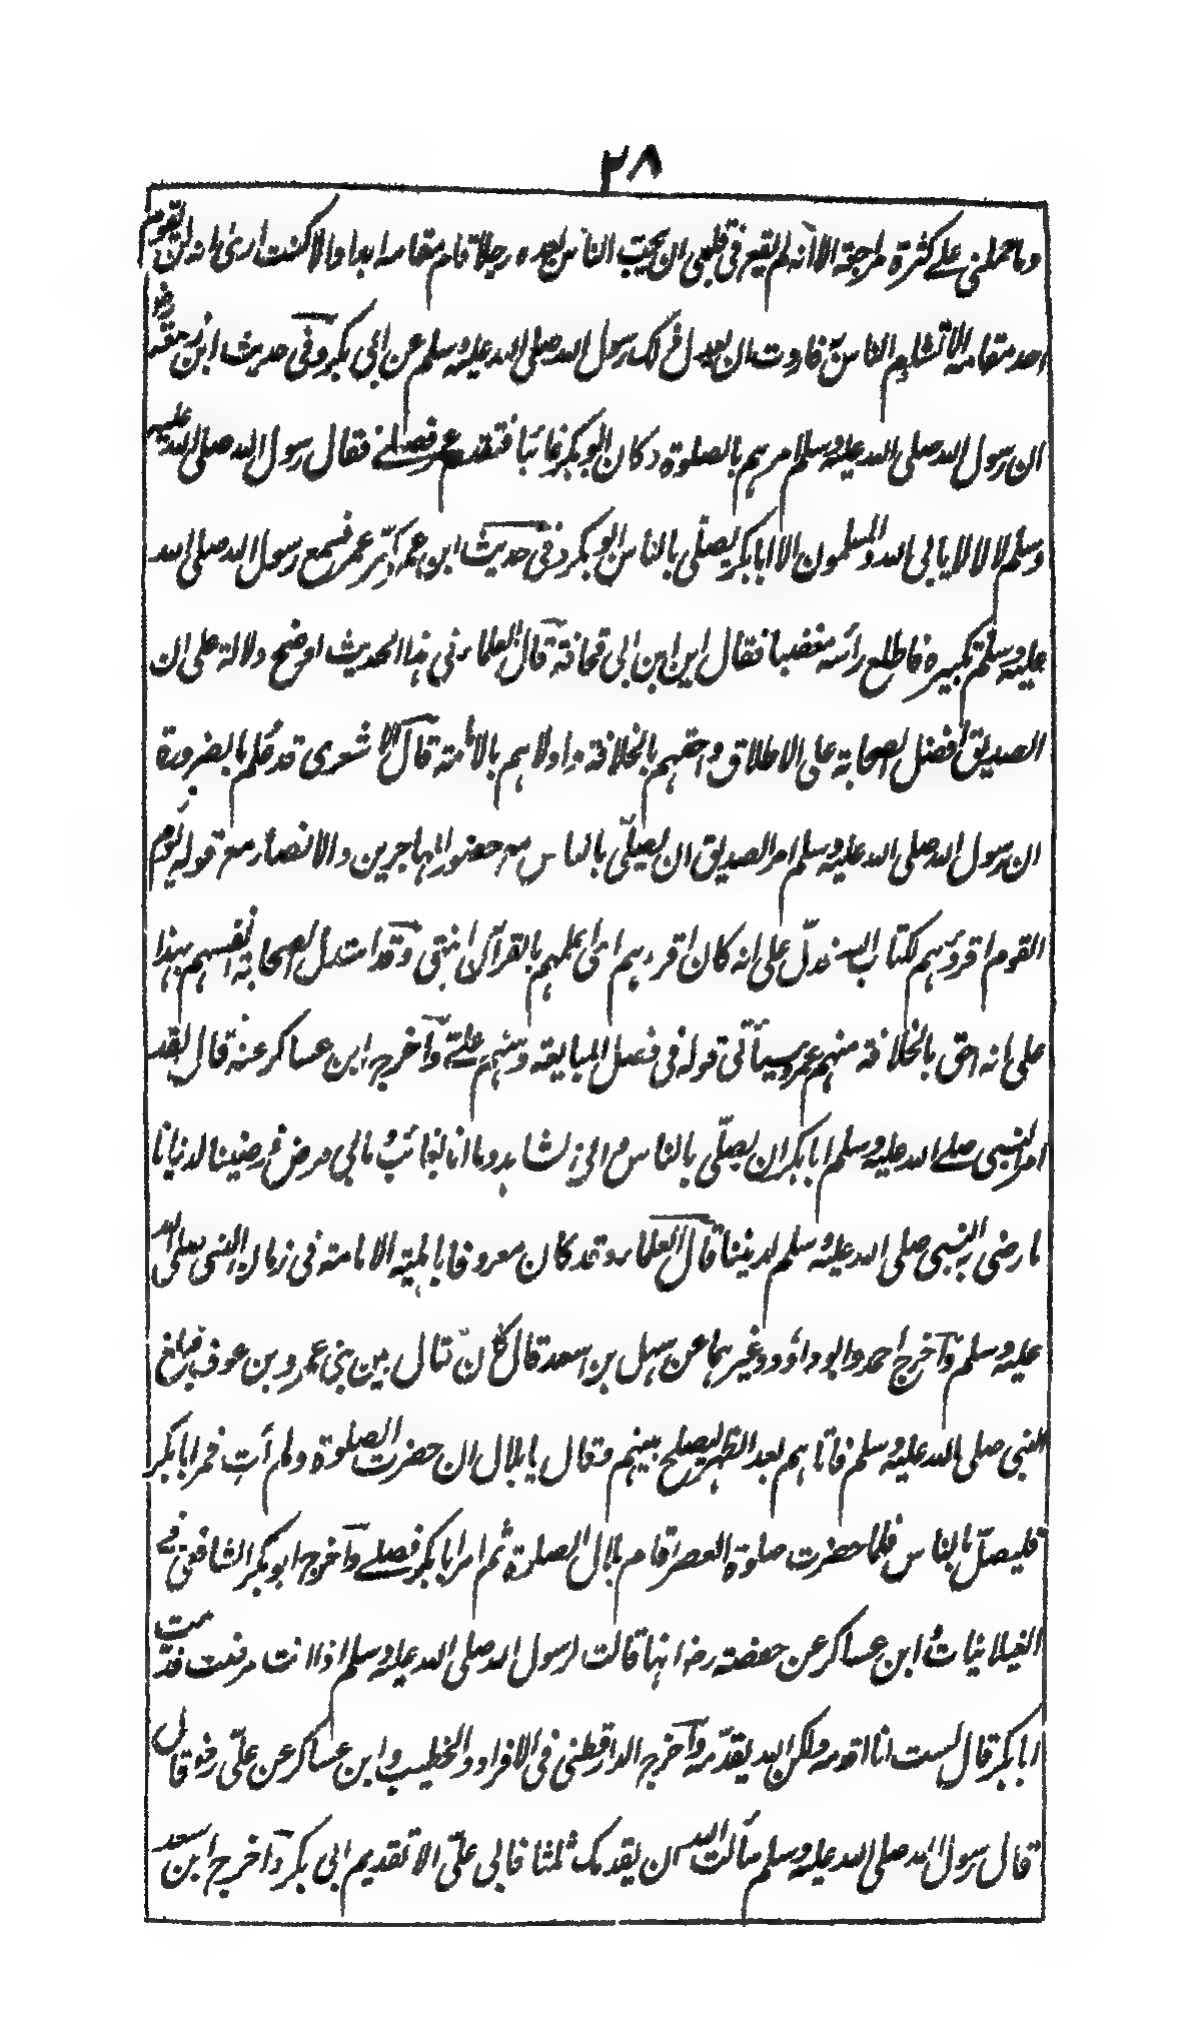 ٢٨
وما حملني على كثرة مراجعته الا انه لم يقع في قلبي ان يحب الناس بعده رجلا قام مقامه ابدا والا كنت ارى انه لن يقوم
احد مقامه الا تشاءم الناس به فاردت ان يعدل ذلك رسول الله صلى الله عليه وسلم عن ابي بكر وفي حديث ابن زمعة رضه
ان رسول الله صلى الله عليه وسلم امرهم بالصلوة وكان ابو بكر غائبا فتقدم عمر فصلے فقال رسول الله صلى الله عليه
وسلم لا لا لا يابى الله والمسلمون الا ابا بكر يصلّى بالناس ابو بكر وفي حديث ابن عمر كبّر عمر فسمع رسول الله صلى الله
عليه وسلم تكبيره فاطلع رأسه مغضبا فقال اين ابن ابي قحافة قال العلماء في هذا الحديث اوضح دلالة على ان
الصديق افضل الصحابة على الاطلاق واحقهم بالخلافة واولاهم بالامامة قال الاشعرى قد علم بالضرورة
ان رسول الله صلى الله عليه وسلم امر الصديق ان يصلّى بالناس مع حضور المهاجرين والانصار مع قوله يوم
القوم اقرؤهم لكتاب الله فدلّ على انه كان اقرءهم اى اعلمهم بالقرآن انتهى وقد استدل الصحابة انفسهم بهذا
على انه احق بالخلافة منهم عمر وسيأتى قوله في فصل المبايعة ومنهم علے وآخرج ابن عساكر عنه قال لقد
امر النبي صلے الله عليه وسلم ابا بكر ان يصلّى بالناس وانى لشاهد وما انا بغائب وما بي مرض فرضينا لدنيانا
ما رضى به النبي صلى الله عليه وسلم لديننا قال العلماء وقد كان معروفا باهلية الامامة في زمان النبي صلى الله
عليه وسلم وآخرج احمد وابو داؤد وغيرهما عن سهل بن سعد قال كان قتال بين بني عمرو بن عوف فبلغ
النبي صلى الله عليه وسلم فاتاهم بعد الظهر ليصلح بينهم وقال يا بلال ان حضرت الصلوة ولم أت فمر ابا بكر
فليصلّ بالناس فلما حضرت صلوة العصر اقام بلال الصلوة ثم امر ابا بكر فصلے وآخرج ابو بكر الشافعي في
الغيلانيات وابن عساكر عن حفصة رض انها قالت لرسول الله صلى الله عليه وسلم اذا انت مرضت قدّمت
ابا بكر قال لست انا اقدمه ولكن الله يقدّمه وآخرج الدارقطني في الافراد والخطيب وابن عساكر عن علّى رض قال
قال رسول الله صلى الله عليه وسلم سألت الله ان يقدمك ثلثا فابى علّى الا تقديم ابي بكر وآخرج ابن سعد